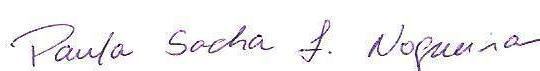 Paula Sacha F. Nogueira